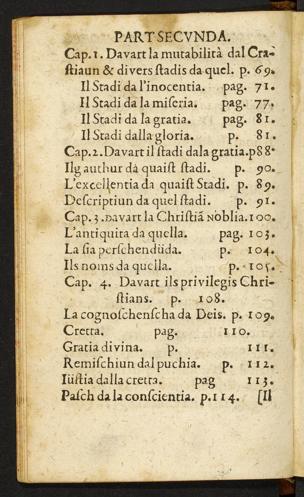 PART SECVNDA.
Cap. 1. Davart la mutabilità dal Cra-
ſtiaun & divers ſtadis da quel. p. 69.
Il Stadi da l'inocentia. pag. 71.
Il Stadi da la miſeria. pag. 77.
Il Stadi da la gratia. pag. 81.
Il Stadi dalla gloria. p. 81.
Cap. 2. Davart il ſtadi dala gratia. p88
Ilg authur dà quaiſt ſtadi. p. 90.
L'excellentia da quaiſt Stadi. p. 89.
Deſcriptiun da quel ſtadi. p. 91.
Cap. 3. Davart la Chriſtiã Noblia. 100.
L'antiquita da quella. pag. 103.
La ſia perſchendüda. p. 104.
Ils noms da quella. p. 105.
Cap. 4. Davart ils privilegis Chri-
ſtians. p. 108.
La cognoſchenſcha da Deis. p. 109.
Cretta. pag. 110.
Gratia divina. p. 111.
Remiſchiun dal puchia. p. 112.
Iüſtia dalla cretta. pag 113.
Paſch da la conſcientia. p. 114. [Il